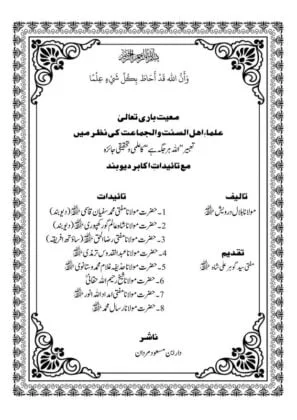 بسم الله الرحمن الرحيم
وَأَنَّ اللهَ قَدْ أَحَاطَ بِكُلِّ شَيْءٍ عِلْمًا
معیت باری تعالیٰ
علماء اھل السنت والجماعت کی نظر میں
تعبیر "اللہ ہر جگہ ہے" کا علمی و تحقیقی جائزہ
مع تائیدات اکابر دیوبند
تالیف
مولانا بلال درویش
تقدیم
مفتی سید گوہر علی شاہ
تائیدات
1- حضرت مولانا مفتی محمد سفیان قاسمی (دیوبند)
2- حضرت مولانا شاہ عالم گورکھپوری (دیوبند)
3- حضرت مولانا مفتی رضاء الحق (ساؤتھ افریقہ)
4- حضرت مولانا مفتی عبدالقدوس ترمذی
5- حضرت مولانا حذیفہ غلام محمد وستانوی
6- حضرت مولانا شیخ رحیم اللہ حقانی
7- حضرت مولانا مفتی امداد اللہ انور
8- حضرت مولانا رسال محمد
ناشر
دار نعمان مسعود مردان